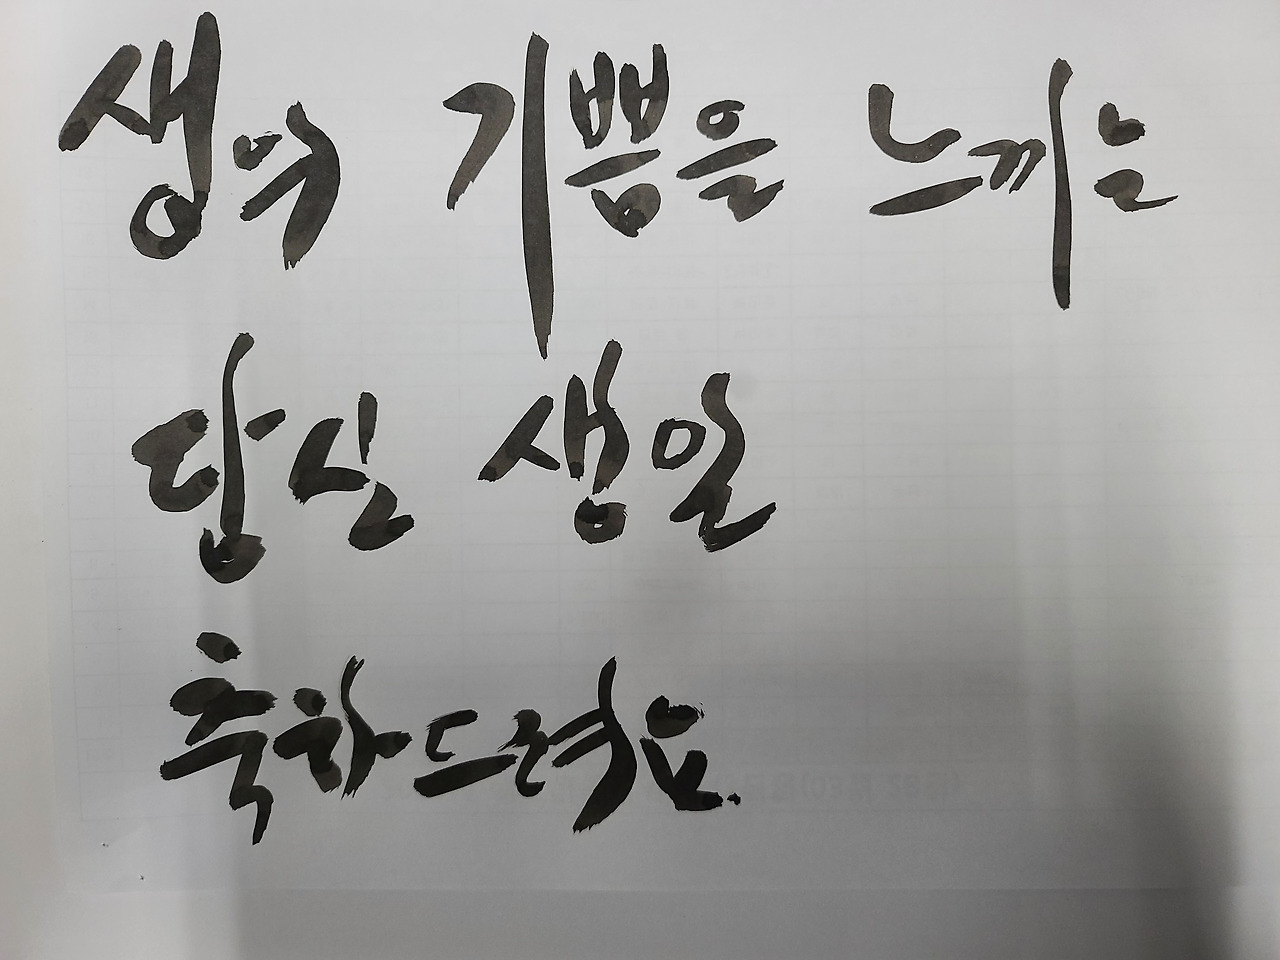 생의 기쁨을 느끼는
당신 생일
축하드려요.